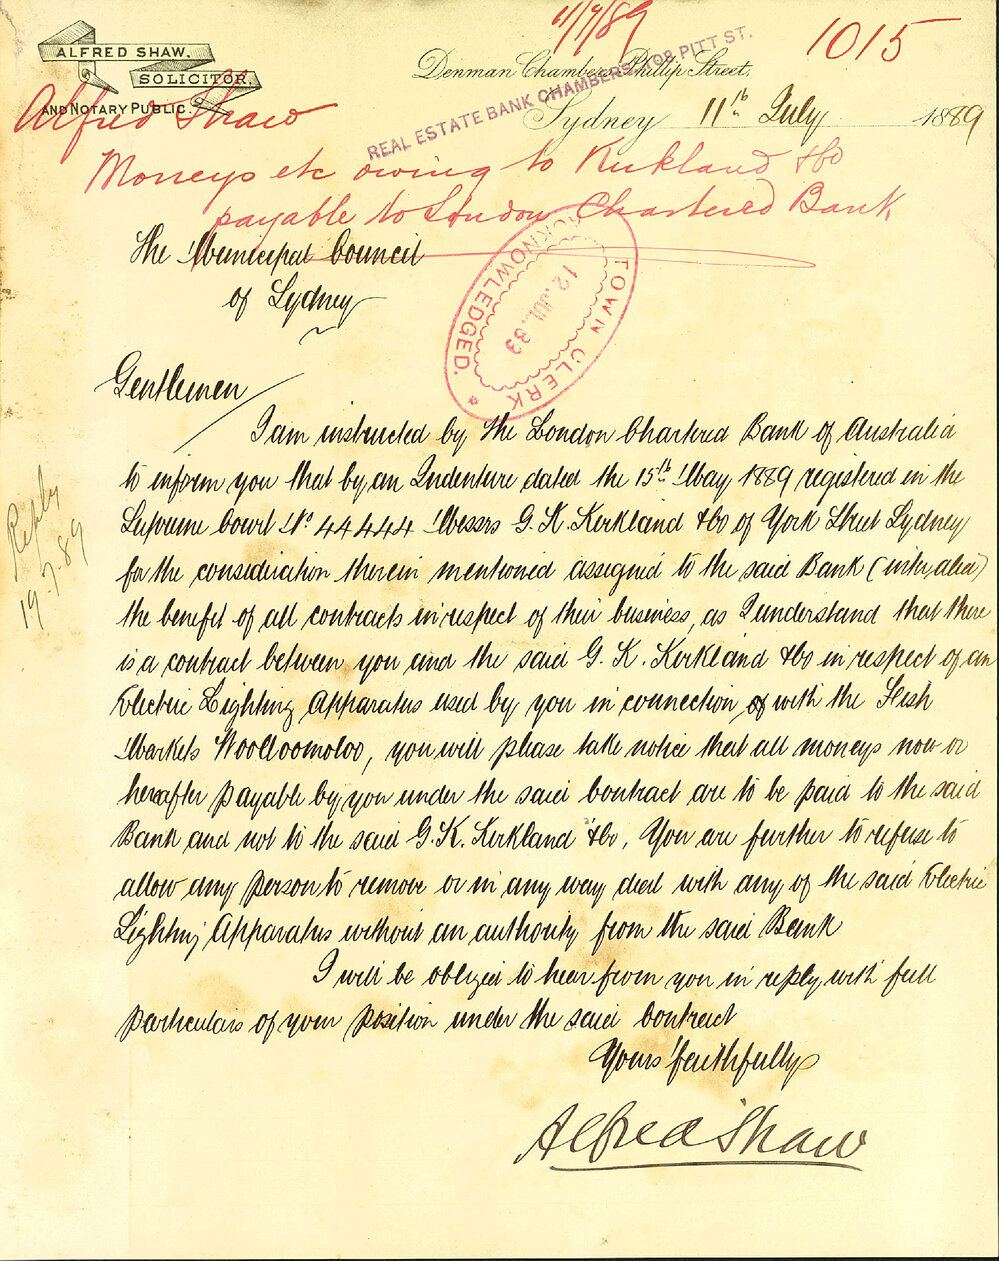 11/7/89
1015
ALFRED SHAW.
SOLICITOR.
AND NOTARY PUBLIC.
Denman Chambers, Phillip Street,
REAL ESTATE BANK CHAMBERS, 108 PITT ST.
Sydney 11th July 1889
Alfred Shaw
Moneys etc owing to Kirkland & Co
payable to London Chartered Bank
The Municipal Council
of Sydney
TOWN CLERK
ACKNOWLEDGED.
12. JUL. 89
Gentlemen
I am instructed by the London Chartered Bank of Australia
to inform you that by an Indenture dated the 15th May 1889 registered in the
Supreme Court No 44444 Messrs G. K. Kirkland & Co of York Street Sydney
for the consideration therein mentioned assigned to the said Bank (inter alia)
the benefit of all contracts in respect of their business, as I understand that there
is a contract between you and the said G. K. Kirkland & Co in respect of an
Electric Lighting Apparatus used by you in connection of with the Fish
Markets Woolloomoloo, you will please take notice that all moneys now or
hereafter payable by you under the said Contract are to be paid to the said
Bank and not to the said G. K. Kirkland & Co, You are further to refuse to
allow any person to remove or in any way deal with any of the said Electric
Lighting Apparatus without an authority from the said Bank
I will be obliged to hear from you in reply with full
particulars of your position under the said Contract
Yours faithfully
Alfred Shaw
Reply
19.7.89